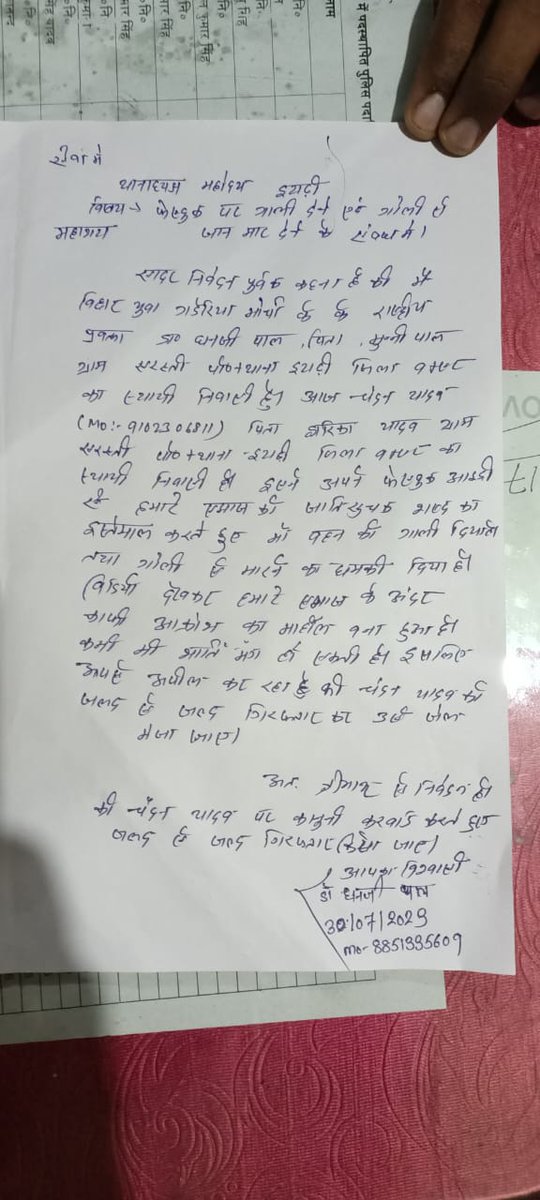 सेवा में
थानाध्यक्ष महोदय इटाढ़ी
विषय → फेसबुक पर गाली देने एवं गोली से
महाशय जान मार देने के संबंध में।
सादर निवेदन पूर्वक कहना है की मैं
बिहार युवा गड़ेरिया मोर्चा के के राष्ट्रीय
प्रवक्ता डा० धनजी पाल, पिता, मुन्नी पाल
ग्राम सरस्ती पो०+थाना इटाढ़ी जिला बक्सर
का स्थायी निवासी हूँ। आज चंदन यादव
(Mo:- 9102306811) पिता द्वारिका यादव ग्राम
सरस्ती पो०+थाना-इटाढ़ी जिला बक्सर का
स्थायी निवासी है। इसने अपने फेसबुक आइडी
से हमारे समाज को जातिसूचक शब्द का
इस्तेमाल करते हुए माँ बहन की गाली दिया है
तथा गोली से मारने का धमकी दिया है।
विडियो देखकर हमारे समाज के अंदर
काफी आक्रोश का माहौल बना हुआ है।
कभी भी शांति भंग हो सकती है। इसलिए
आपसे अपील कर रहा हूँ की चंदन यादव को
जल्द से जल्द गिरफ्तार कर उसे जेल
भेजा जाए।
अतः श्रीमान से निवेदन है।
की चंदन यादव पर कानुनी करवाई करते हुए
जल्द से जल्द गिरफ्तार किया जाए।
आपका विश्वासी
डॉ धनजी पाल
30/07/2023
mo- 8851395609
में पदस्थापित पुलिस पदा
नाम
कुमार सिंह
17